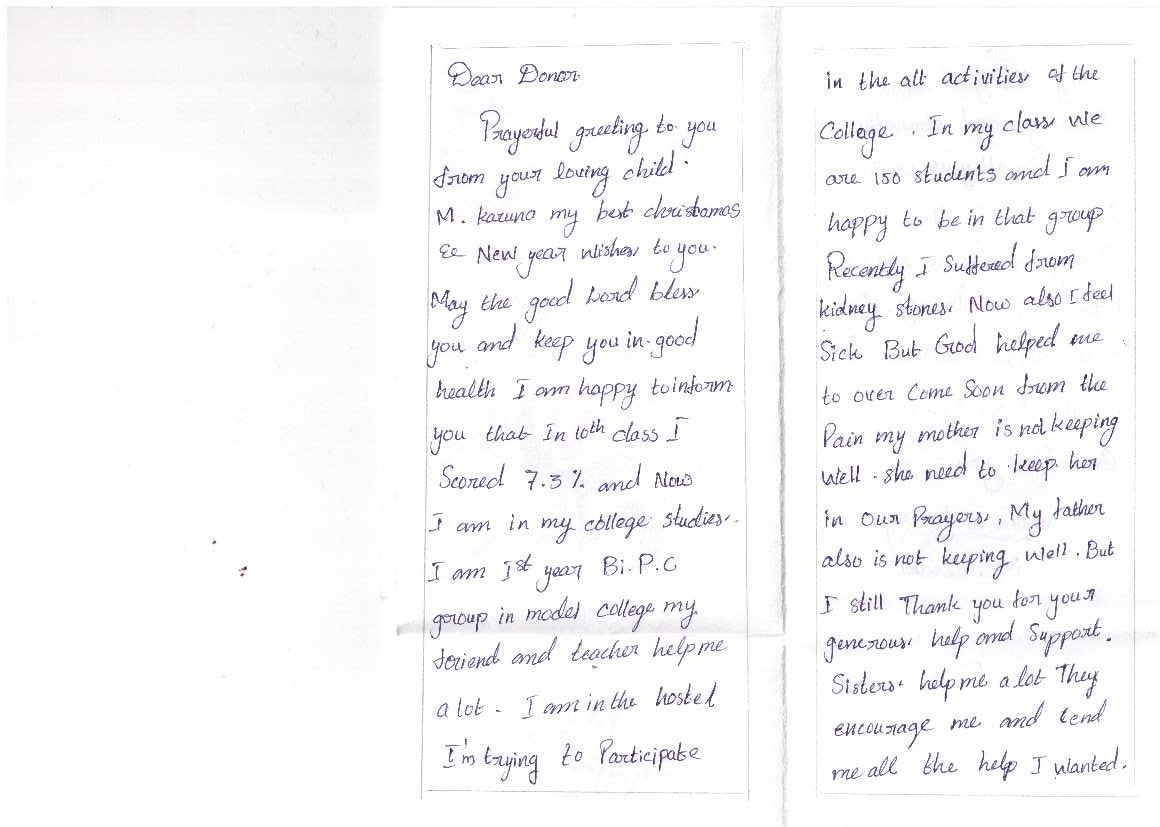 Dear Donor.
Prayerful greeting to you
from your loving child.
M. karuna my best christamas
& New year wishes to you.
May the good Lord bless
you and keep you in good
health I am happy to inform
you that In 10th class I
Scored 7.3% and Now
I am in my college studies.
I am Ist year Bi.P.C
group in model college my
friend and teacher help me
a lot. I am in the hostel
I'm trying to Participate
in the all activities of the
College. In my class we
are 150 students and I am
happy to be in that group
Recently I Suffered from
kidney stones. Now also I feel
Sick But God helped me
to over Come Soon from the
Pain my mother is not keeping
well. she need to keep her
in our Prayers, My father
also is not keeping well. But
I still Thank you for your
generous help and Support.
Sisters help me a lot They
encourage me and lend
me all the help I wanted.